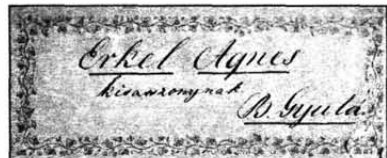 Erkel Agnes
kisasszonynak
B. Gyula.